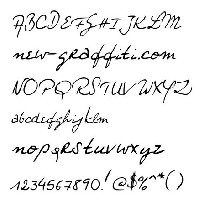 ABCDEFGHIJKLM
new-graffiti.com
NOPQRSTUVWXYZ
abcdefghijklm
nopqrstuvwxyz
1234567890.!@$%^*()